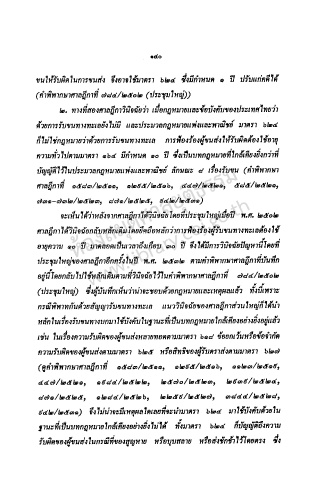 ๑๔๐
ขนให้รับผิดในการขนส่ง จึงอาจใช้มาตรา ๖๒๔ ซึ่งมีกำหนด ๑ ปี ปรับแก่คดีได้
(คำพิพากษาศาลฎีกาที่ ๗๘๔/๒๕๐๒ (ประชุมใหญ่))
๒. ทางที่สองศาลฎีกาวินิจฉัยว่า เมื่อกฎหมายและข้อบังคับของประเทศไทยว่า
ด้วยการรับขนทางทะเลยังไม่มี และประมวลกฎหมายแพ่งและพาณิชย์ มาตรา ๖๒๔
ก็ไม่ใช่กฎหมายว่าด้วยการรับขนทางทะเล การฟ้องร้องผู้ขนส่งให้รับผิดต้องใช้อายุ
ความทั่วไปตามมาตรา ๑๖๔ มีกำหนด ๑๐ ปี ซึ่งเป็นบทกฎหมายที่ใกล้เคียงยิ่งกว่าที่
บัญญัติไว้ในประมวลกฎหมายแพ่งและพาณิชย์ ลักษณะ ๘ เรื่องรับขน (คำพิพากษา
ศาลฎีกาที่ ๑๕๘๓/๒๕๑๑, ๑๒๙๕/๒๕๑๖, ๔๔๗/๒๕๒๑, ๕๘๕/๒๕๒๑,
๗๓๑-๗๓๒/๒๕๒๓, ๘๗๑/๒๕๒๕, ๙๔๒/๒๕๓๑)
จะเห็นได้ว่าหลังจากศาลฎีกาได้วินิจฉัยโดยที่ประชุมใหญ่เมื่อปี พ.ศ. ๒๕๐๒
ศาลฎีกาได้วินิจฉัยกลับหลักเดิมโดยถือหลักว่าการฟ้องร้องผู้รับขนทางทะเลต้องใช้
อายุความ ๑๐ ปี มาตลอดเป็นเวลาถึงเกือบ ๓๐ ปี จึงได้มีการวินิจฉัยปัญหานี้โดยที่
ประชุมใหญ่ของศาลฎีกาอีกครั้งในปี พ.ศ. ๒๕๓๒ ตามคำพิพากษาศาลฎีกาที่บันทึก
อยู่นี้โดยกลับไปใช้หลักเดิมตามที่วินิจฉัยไว้ในคำพิพากษาศาลฎีกาที่ ๗๘๔/๒๕๐๒
(ประชุมใหญ่) ซึ่งผู้บันทึกเห็นว่าน่าจะชอบด้วยกฎหมายและเหตุผลแล้ว ทั้งนี้เพราะ
กรณีพิพาทกันด้วยสัญญารับขนทางทะเล แนววินิจฉัยของศาลฎีกาส่วนใหญ่ก็ได้นำ
หลักในเรื่องรับขนทางบกมาใช้บังคับในฐานะที่เป็นบทกฎหมายใกล้เคียงอย่างยิ่งอยู่แล้ว
เช่น ในเรื่องความรับผิดของผู้ขนส่งหลายทอดตามมาตรา ๖๑๘ ข้อยกเว้นหรือข้อจำกัด
ความรับผิดของผู้ขนส่งตามมาตรา ๖๒๕ หรือสิทธิของผู้รับตราส่งตามมาตรา ๖๒๗
(ดูคำพิพากษาศาลฎีกาที่ ๑๕๘๓/๒๕๑๑, ๑๒๙๕/๒๕๑๖, ๑๑๒๓/๒๕๑๙,
๔๔๗/๒๕๒๑, ๑๙๘๔/๒๕๒๒, ๒๕๗๐/๒๕๒๓, ๒๖๓๙/๒๕๒๔,
๘๗๑/๒๕๒๕, ๑๒๘๔/๒๕๒๖, ๒๒๕๙/๒๕๒๗, ๓๘๔๔/๒๕๒๘,
๙๔๒/๒๕๓๑) จึงไม่น่าจะมีเหตุผลใดเลยที่จะนำมาตรา ๖๒๔ มาใช้บังคับด้วยใน
ฐานะที่เป็นบทกฎหมายใกล้เคียงอย่างยิ่งไม่ได้ ทั้งมาตรา ๖๒๔ ก็บัญญัติถึงความ
รับผิดของผู้ขนส่งในกรณีที่ของสูญหาย หรือบุบสลาย หรือส่งชักช้าไว้โดยตรง ซึ่ง